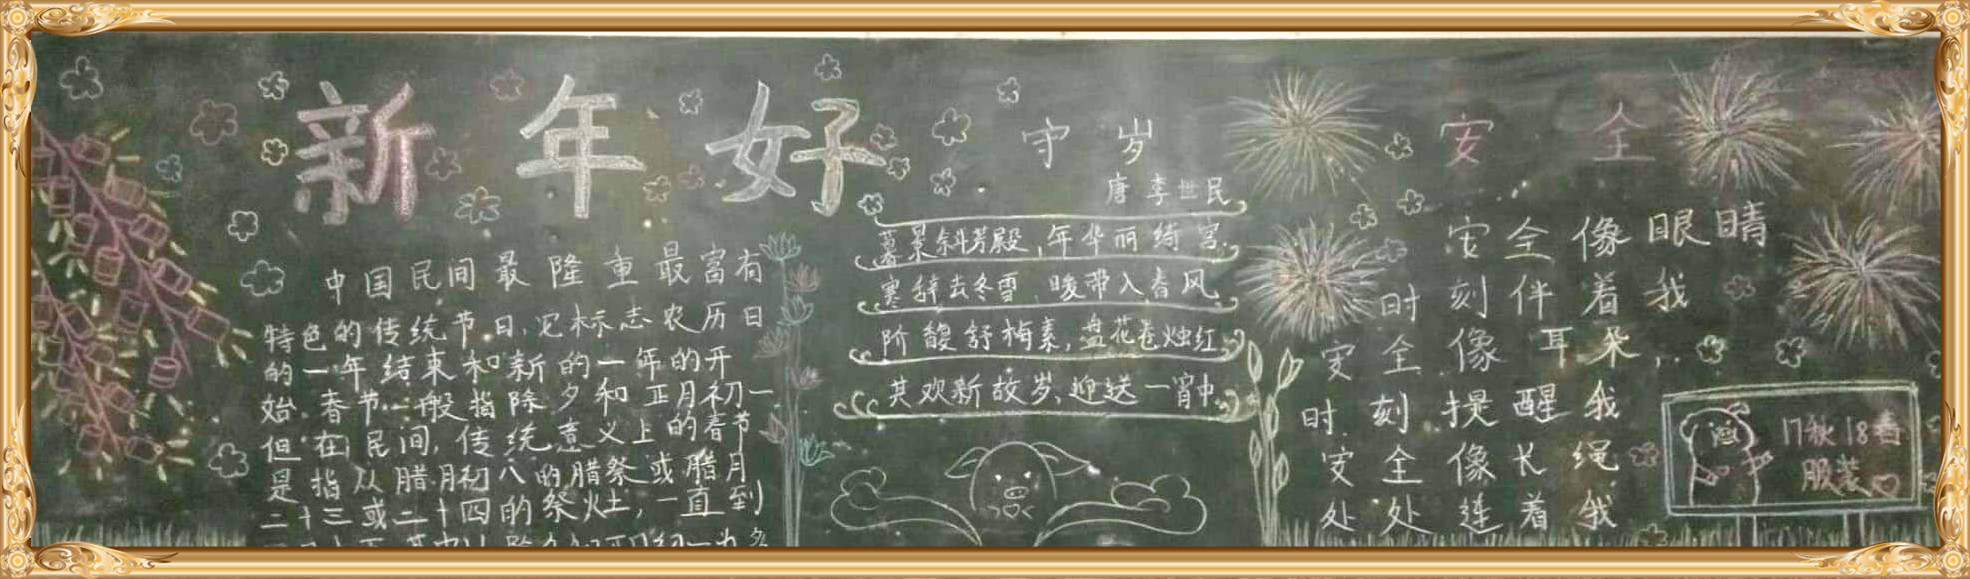 新年好
中国民间最隆重最富有
特色的传统节日,它标志农历日
的一年结束和新的一年的开
始.春节一般指除夕和正月初一
但在民间,传统意义上的春节
是指从腊月初八的腊祭或腊月
二十三或二十四的祭灶,一直到
守岁
唐李世民
暮景斜芳殿,年华丽绮宫.
寒辞去冬雪,暖带入春风
阶馥舒梅素,盘花卷烛红
共欢新故岁,迎送一宵中.
安全
安全像眼睛
时刻伴着我
安全像耳朵,
时刻提醒我
安全像长绳
处处连着我
17秋18春
服装